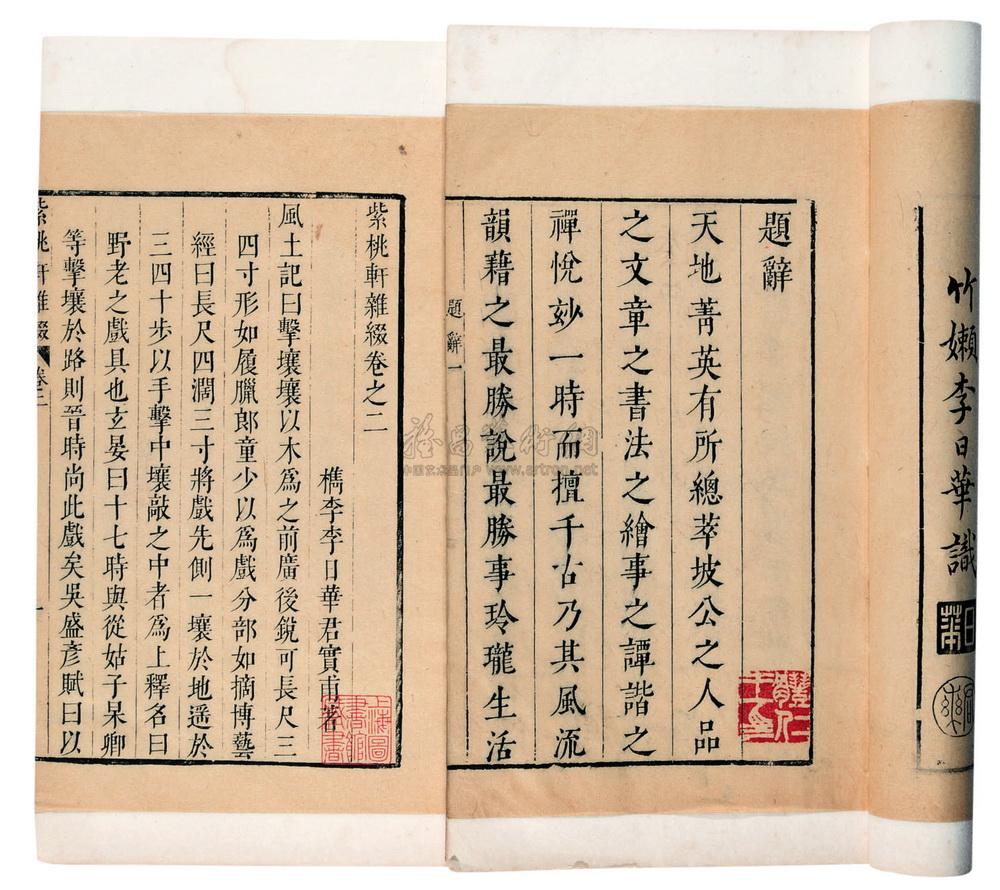 竹嬾李日華識
題辭
天地菁英有所總萃坡公之人品
之文章之書法之繪事之譚諧之
禪悅妙一時而擅千古乃其風流
韻藉之最勝說最勝事玲瓏生活
題辭 一
紫桃軒雜綴卷之二
檇李李日華君實甫著
上海圖書館藏書
風土記曰擊壤壤以木為之前廣後銳可長尺三
四寸形如履臘郎童少以為戲分部如摘博藝
經曰長尺四濶三寸將戲先側一壤於地遥於
三四十步以手擊中壤敲之中者為上釋名曰
野老之戲具也玄晏曰十七時與從姑子杲卿
等擊壤於路則晉時尚此戲矣吳盛彥賦曰以
紫桃軒雜綴 卷二 一
www.artron.net